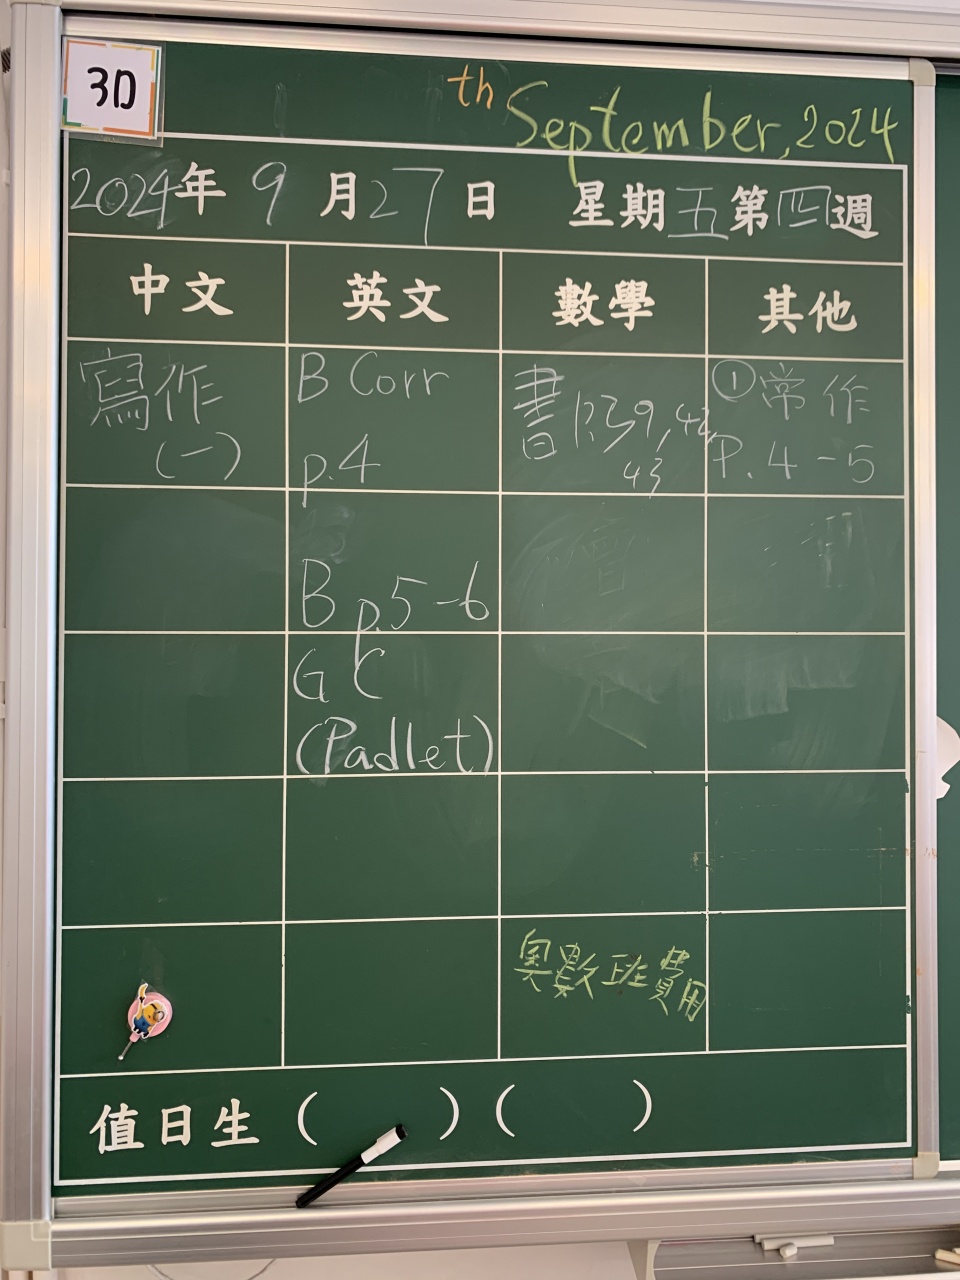 3D
th September, 2024
2024年 9月27日 星期五第四週
中文 英文 數學 其他
寫作 B Corr 書 39, 42, ①常作
(一) p.4 43 P.4-5
B p.5-6
GC
(Padlet)
奧數班費用
值日生 ( ) ( )